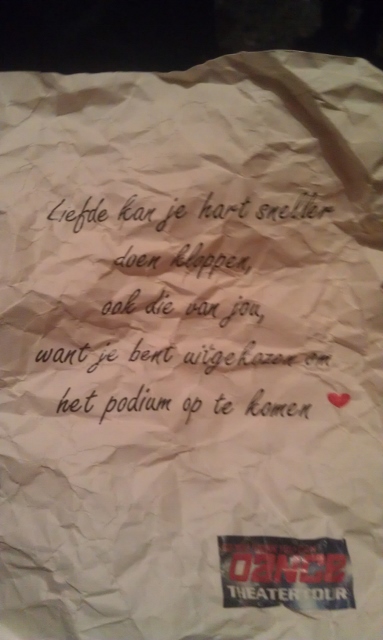 Liefde kan je hart sneller
doen kloppen,
ook die van jou,
want je bent uitgekozen om
het podium op te komen
DANCE
THEATERTOUR